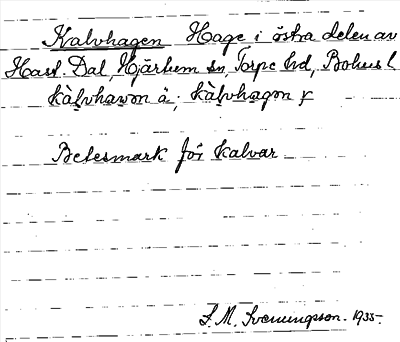 Kalvhagen Hage i östra delen av
Dal, Hjärtum sn, Torpe hd, Bohus l
kàlvhawon ä; kàlvhagon y
Betesmark för kalvar
S. M. Svenungsson. 1935.